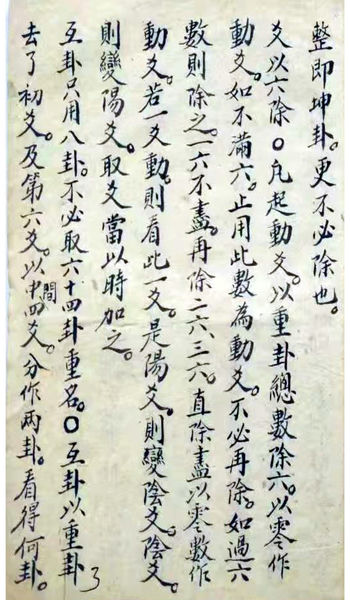 整即坤卦。更不必除也。
爻以六除〇凡起動爻。以重卦總數除六。以零作
動爻。如不滿六。止用此數為動爻。不必再除。如過六
數則除之。一六不盡。再除二六、三六。直除盡以零數作
動爻。若一爻動。則看此一爻。是陽爻。則變陰爻。陰爻。
則變陽爻。取爻當以時加之。
互卦只用八卦。不必取六十四卦重名。〇互卦以重卦
去了初爻。及第六爻。以中間四爻。分作兩卦。看得何卦。